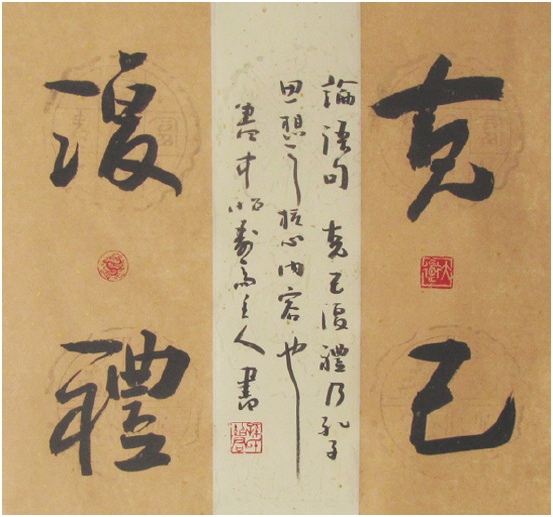 克己
復禮
論語句 克己復禮乃孔子
思想之核心內容也
主人書